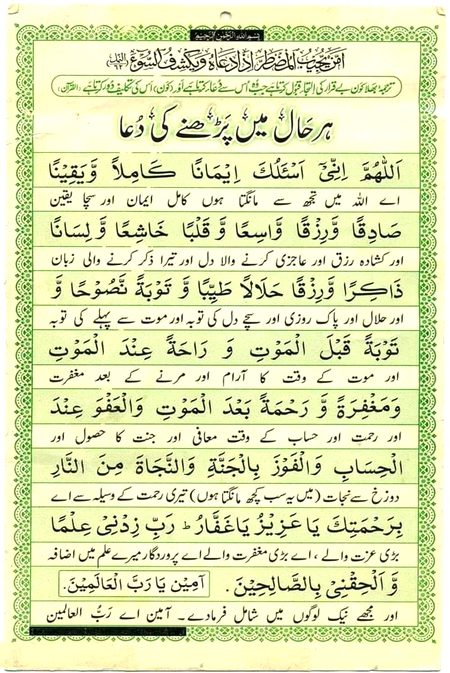 بسم اللہ الرحمن الرحیم
اَمَّنْ يُّجِيْبُ الْمُضْطَرَّ اِذَا دَعَاهُ وَيَكْشِفُ السُّوْٓءَ (النمل)
ترجمہ: بھلا کون بے قرار کی التجا قبول کرتا ہے جب وہ اُس سے دعا کرتا ہے اور (کون) اُس کی تکلیف دور کرتا ہے (القرآن)
ہر حال میں پڑھنے کی دُعا
اَللّٰهُمَّ اِنِّىْٓ اَسْئَلُكَ اِيْمَانًا كَامِلاً وَّيَقِيْنًا
اے اللہ میں تجھ سے مانگتا ہوں کامل ایمان اور سچا یقین
صَادِقًا وَّرِزْقًا وَّاسِعًا وَّ قَلْبًا خَاشِعًا وَّ لِسَانًا
اور کشادہ رزق اور عاجزی کرنے والا دل اور تیرا ذکر کرنے والی زبان
ذَاكِرًا وَّرِزْقًا حَلَالاً طَيِّبًا وَّ تَوْبَةً نَّصُوْحًا وَّ
اور حلال اور پاک روزی اور سچے دل کی توبہ اور موت سے پہلے کی توبہ
تَوْبَةً قَبْلَ الْمَوْتِ وَ رَاحَةً عِنْدَ الْمَوْتِ
اور موت کے وقت کا آرام اور مرنے کے بعد مغفرت
وَمَغْفِرَةً وَّ رَحْمَةً بَعْدَ الْمَوْتِ وَالْعَفْوَ عِنْدَ
اور رحمت اور حساب کے وقت معافی اور جنت کا حصول اور
الْحِسَابِ وَالْفَوْزَ بِالْجَنَّةِ وَالنَّجَاةَ مِنَ النَّارِ
دوزخ سے نجات (میں یہ سب کچھ مانگتا ہوں) تیری رحمت کے وسیلہ سے اے
بِرَحْمَتِكَ يَا عَزِيْزُ يَاغَفَّارُ ط رَبِّ زِدْنِىْ عِلْمًا
بڑی عزت والے ، اے بڑی مغفرت والے اے پروردگار میرے علم میں اضافہ
وَّ اَلْحِقْنِىْ بِالصَّالِحِيْنَ . آمِيْن يَا رَبَّ الْعَالَمِيْنَ.
اور مجھے نیک لوگوں میں شامل فرمادے۔ آمین اے رَبُّ العالمین